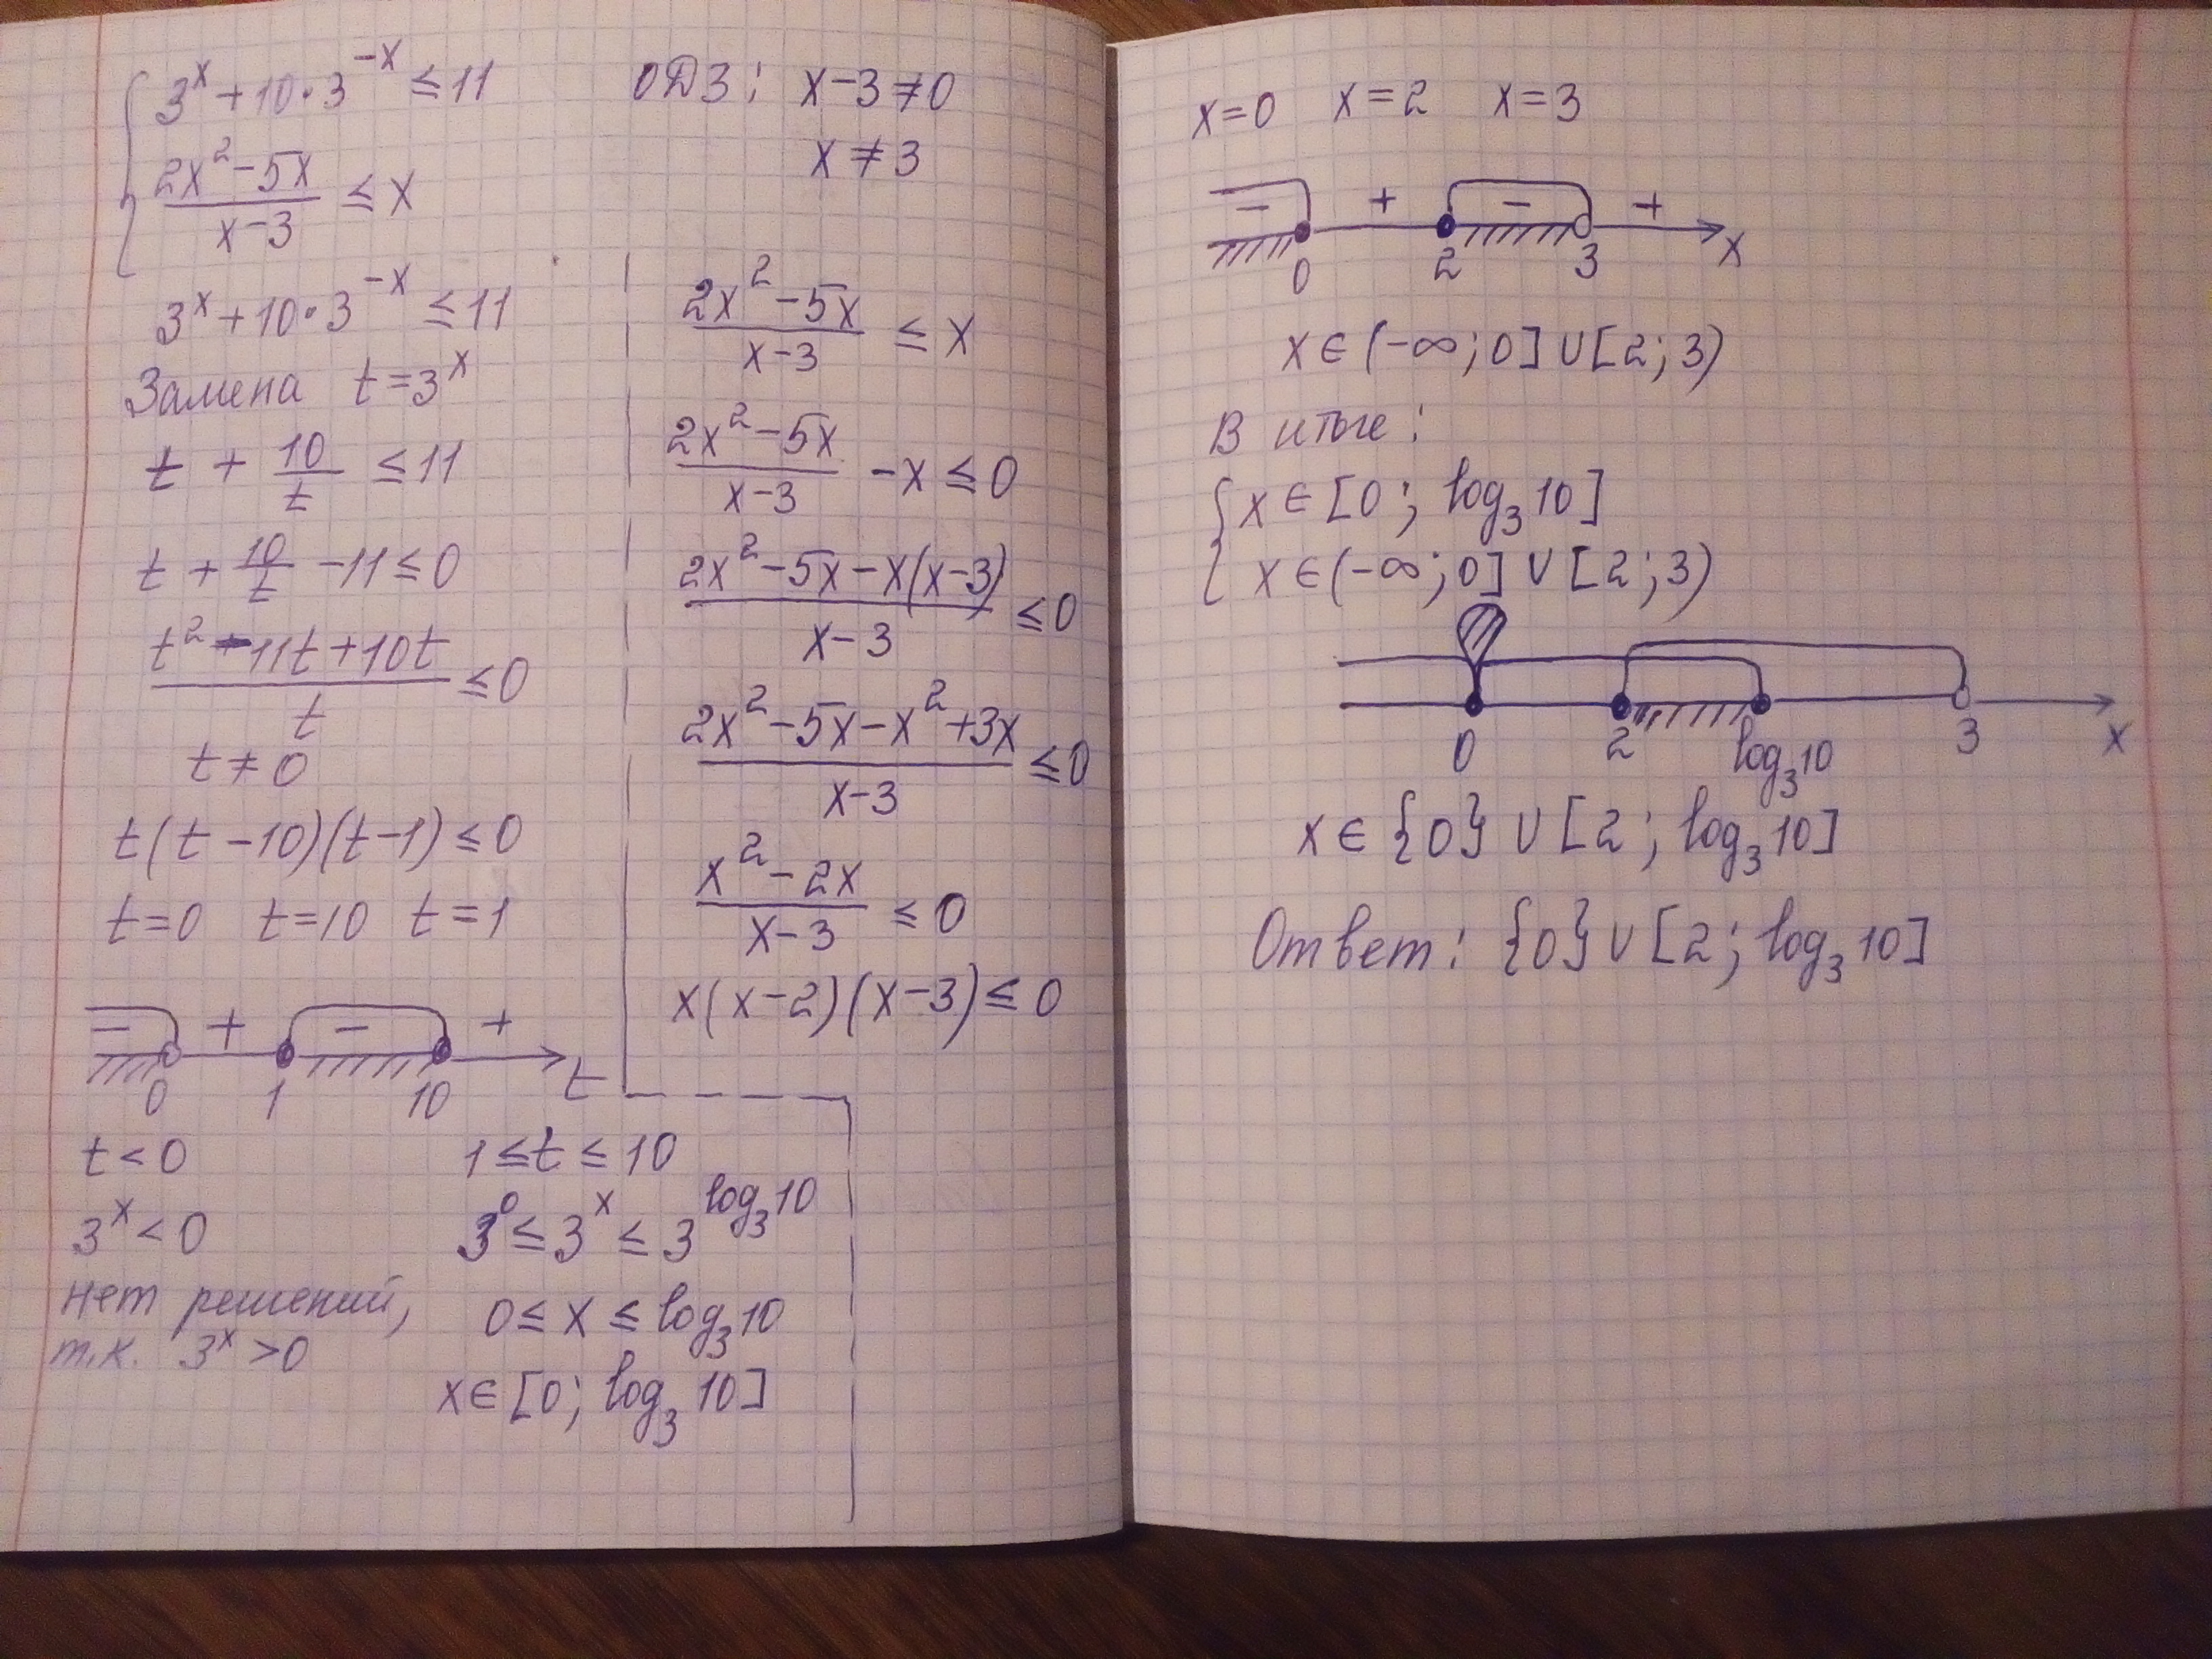 3^x + 10·3^{-x} ≤ 11
(2x² - 5x)/(x-3) ≤ x
3^x + 10·3^{-x} ≤ 11
Замена t = 3^x
t + 10/t ≤ 11
t + 10/t - 11 ≤ 0
(t² - 11t + 10t)/t ≤ 0
t ≠ 0
t(t - 10)(t - 1) ≤ 0
t = 0 t = 10 t = 1
− + − +
0 1 10 t
t < 0
3^x < 0
нет решений,
т.к. 3^x > 0
1 ≤ t ≤ 10
3^0 ≤ 3^x ≤ 3^{log₃10}
0 ≤ x ≤ log₃10
x ∈ [0; log₃10]
ОДЗ: x - 3 ≠ 0
x ≠ 3
(2x² - 5x)/(x-3) ≤ x
(2x² - 5x)/(x-3) - x ≤ 0
(2x² - 5x - x(x-3))/(x-3) ≤ 0
(2x² - 5x - x² + 3x)/(x-3) ≤ 0
(x² - 2x)/(x-3) ≤ 0
x(x-2)(x-3) ≤ 0
x=0 x=2 x=3
− + − +
0 2 3 x
x ∈ (-∞; 0] ∪ [2; 3)
В итоге:
x ∈ [0; log₃10]
x ∈ (-∞; 0] ∪ [2; 3)
0 2 log₃10 3 x
x ∈ {0} ∪ [2; log₃10]
Ответ: {0} ∪ [2; log₃10]